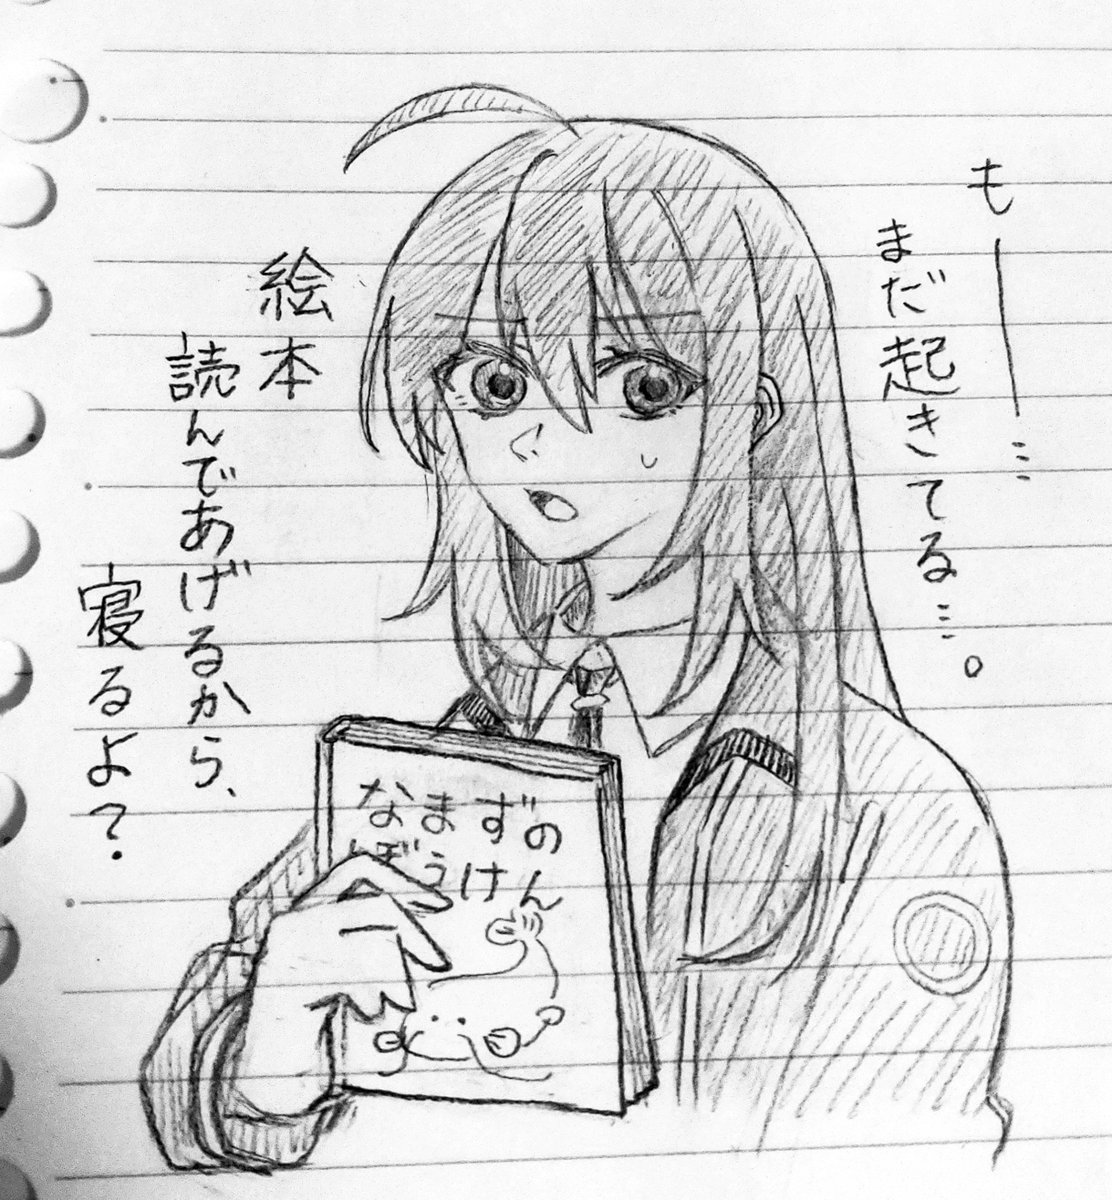 もー…
まだ起きてる…。
絵本
読んであげるから、
寝るよ？
なまずの
ぼうけん